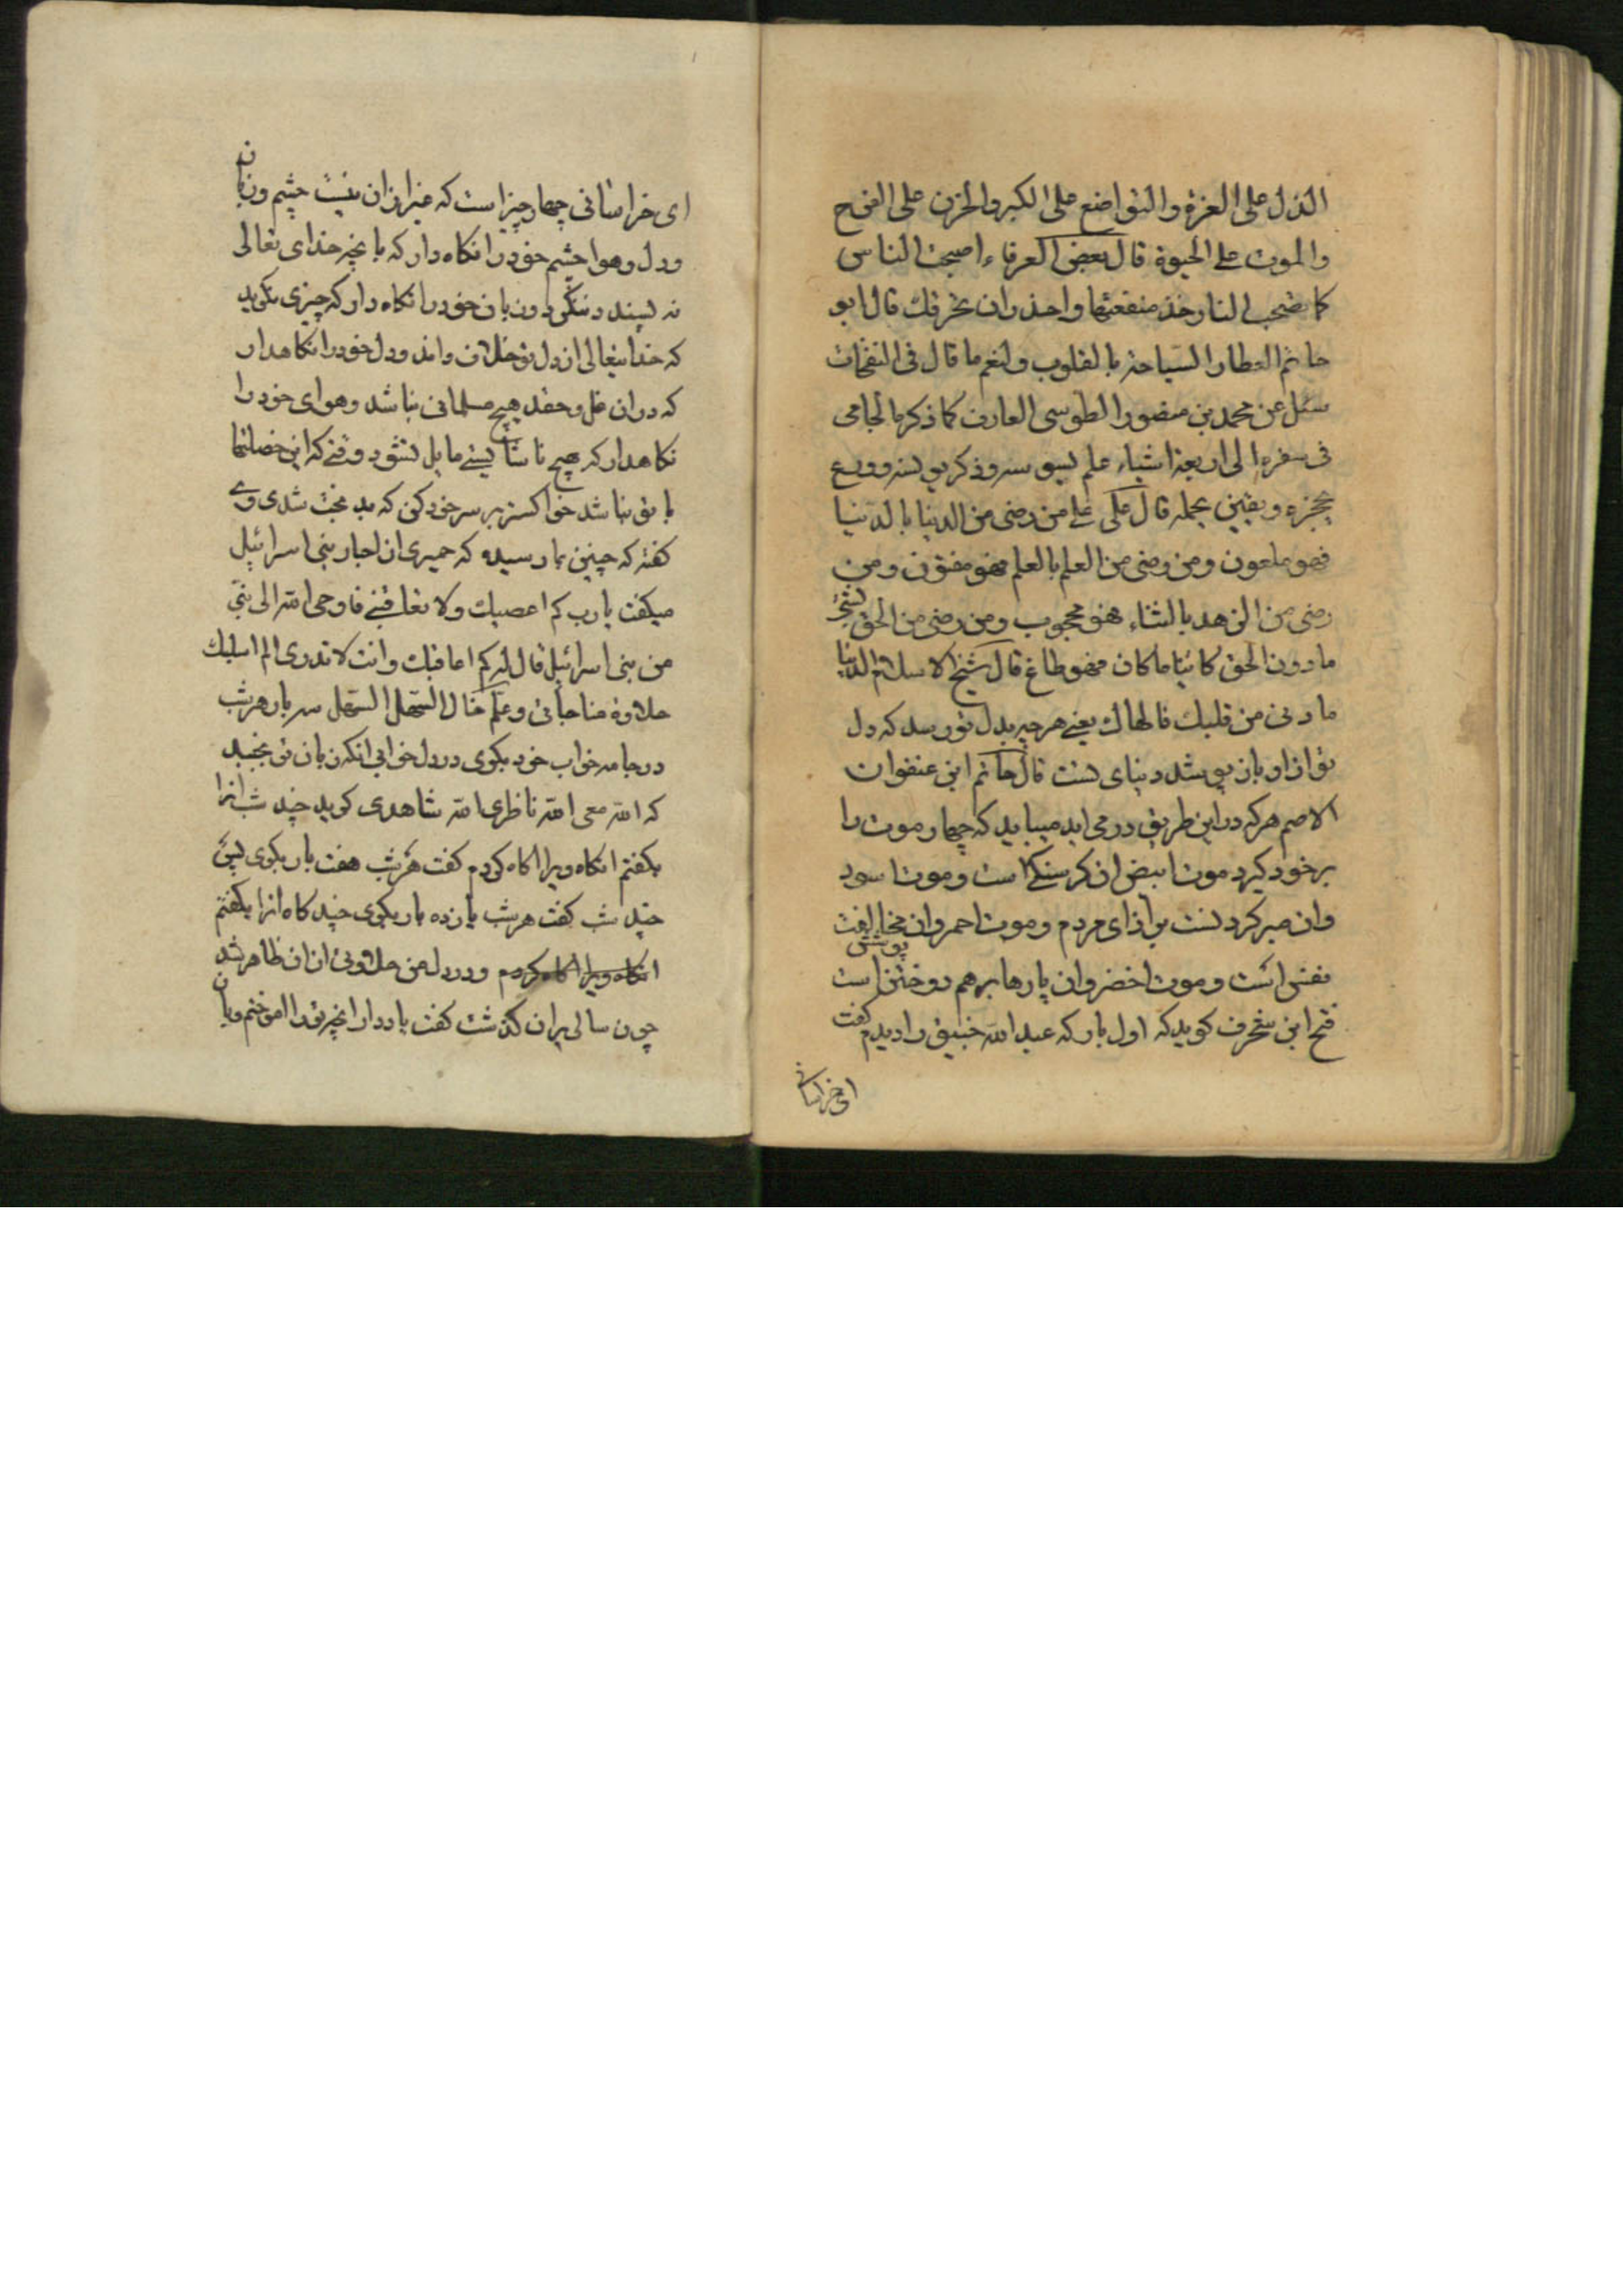 الذل على العزة والتواضع على الكبر والحزن على الفرح
والموت على الحيوة قال بعض العرفاء اصحب الناس
كما تصحب النار خذ منفعتها واحذر ان تحرقك قال ابو
حاتم العطار السياحة بالقلوب ولنعم ما قال فى النفحات
سئل عن محمد بن منصور الطوسى العارف كما ذكره الجامى
فى سفره الى اربعة اشياء علم يسوسه وذكر يونسه وورع
يحجزه ويقين يحمله قال على من رضى من الدنيا بالدنيا
فهو ملعون ومن رضى من العلم بالعلم فهو مفتون ومن
رضى من الزهد بالثناء فهو محجوب ومن رضى من الحق بشئ
ما دون الحق كائنا ما كان فهو طاغ قال شيخ الاسلام الدنيا
ما دنى من قلبك فالهاك يعنى هرچه بدل تو رسد كه دل
تو از او باز پوشد دنياى تست قال حاتم ابن عنفوان
الاصم هركه در اين طريق درمى ايد ميبايد كه چهار موت را
بر خود كيرد موت ابيض ان كرسنكى است وموت اسود
وان صبر كردنست بر اذاى مردم وموت احمر وان مخالفت
نفس است وموت اخضر وان پارها برهم دوختن است پوشش
فتح ابن شخرف كويد كه اول بار كه عبد الله خبيق را ديدم كفت
اى خراسانى
اى خراسانى چهار چيز است كه غير ازان نيست چشم وزبان
ودل وهوا چشم خود را نكاه دار كه بانچه خداى تعالى
نه پسندد ننكرد وزبان خود را نكاه دار كه چيزى نكويد
كه خدا يتعالى از دل تو خلاف داند ودل خود را نكاهدار
كه دران غل وحقد هيچ مسلمانى نباشد وهواى خود را
نكاهدار كه هيچ ناشايستى مايل نشود وقتى كه اين خصلتها
با تو نباشد خواكستر بر سر خود كن كه بد بخت شدى وى
كفته كه چنين بما رسيده كه حميرى از احبار بنى اسرائيل
ميكفت يا رب كم اعصيك ولا تعاقبنى فاوحى الله الى نبى
من بنى اسرائيل قال له كم اعاقبك وانت لا تدرى الم اسلبك
حلاوة مناجاتى وعلم خال السهل السهل سه بار هر شب
در جامه خواب خود بكوى در دل خوابى انكه زبان تو بجنبد
كه الله معى الله ناظرى الله شاهدى كويد چند شب انرا
بكفتم انكاه ويرا اكاه كردم كفت هر شب هفت بار بكوى پس
چند شب كفت هر شب يازده بار بكوى چند كاه انرا بكفتم
انكاه ويرا اكاه كردم ودر دل من حلاوتى از ان ظاهر شد
چون سالى بران كذشت كفت ياد دار انچه ترا اموختم وبان